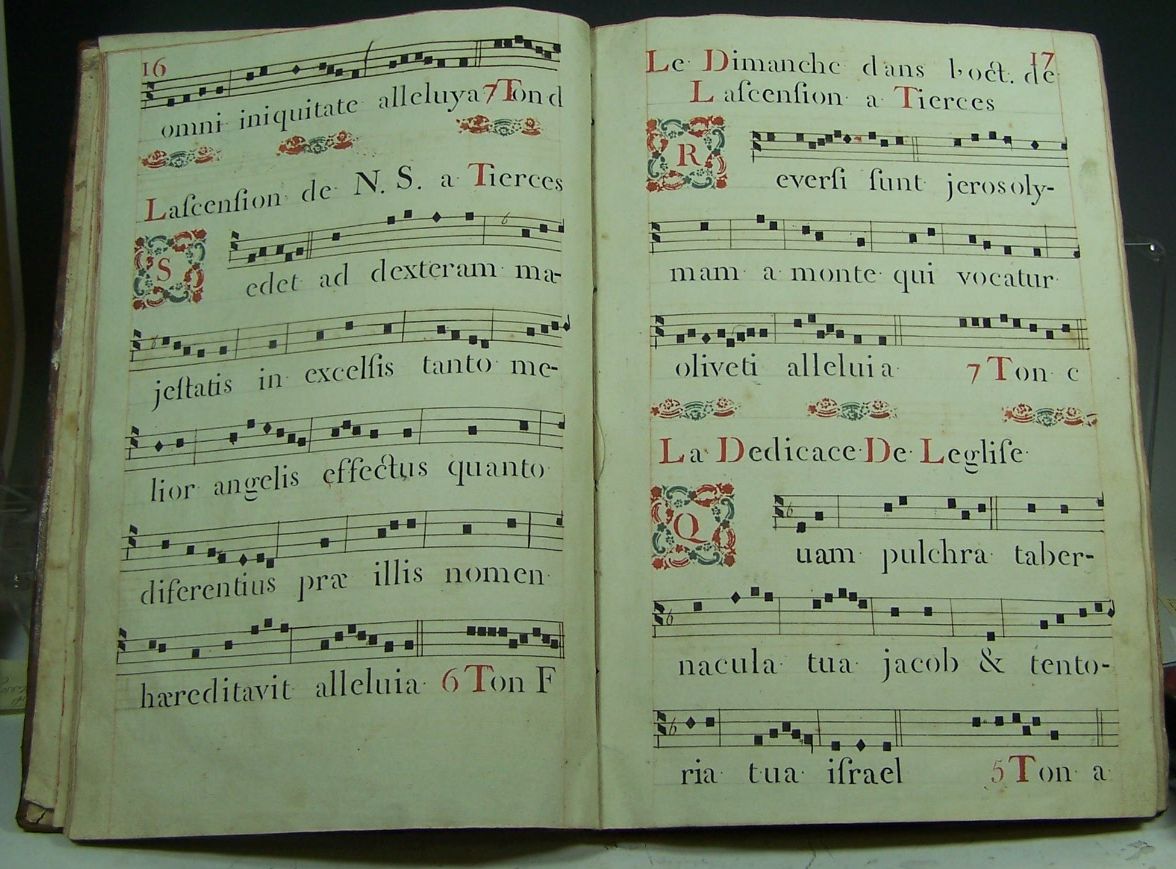 16
omni iniquitate alleluya 7 Ton d
Laſcenſion de N. S. a Tierces
Sedet ad dexteram ma-
jeſtatis in excelſis tanto me-
lior angelis effectus quanto
diferentius præ illis nomen
hæreditavit alleluia 6 Ton F
17
Le Dimanche dans l'oct. de
Laſcenſion a Tierces
Reverſi ſunt jerosoly-
mam a monte qui vocatur
oliveti alleluia 7 Ton c
La Dedicace De Legliſe
Quam pulchra taber-
nacula tua jacob & tento-
ria tua iſrael 5 Ton a